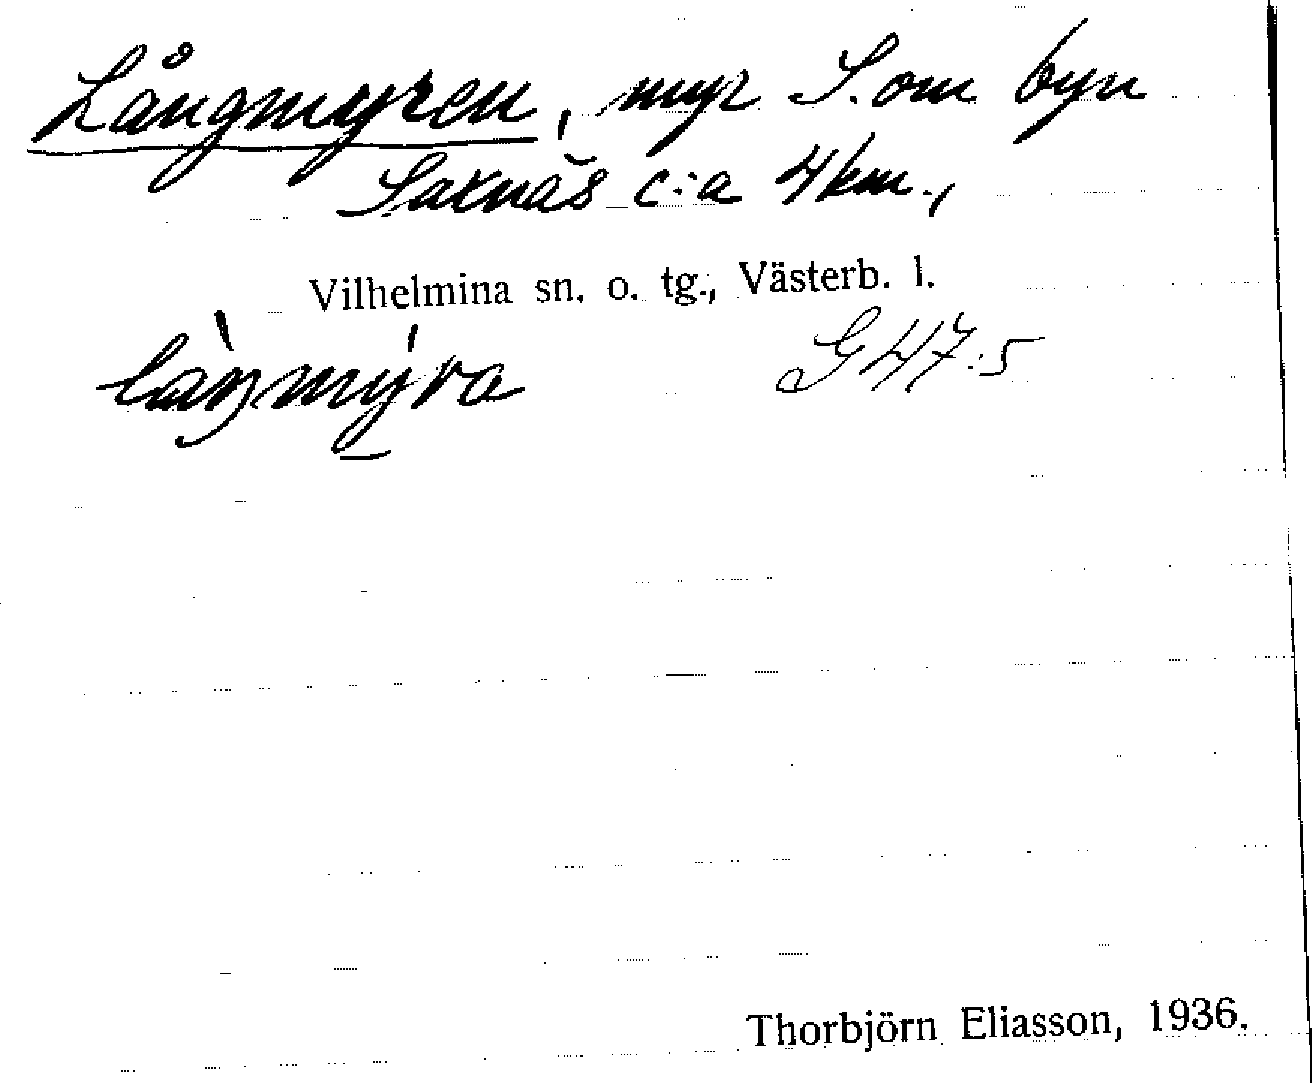 Långmyren, myr S. om byn
Saxnäs c:a 4 km.,
Vilhelmina sn. o. tg., Västerb. l.
G 47:5
Thorbjörn Eliasson, 1936.